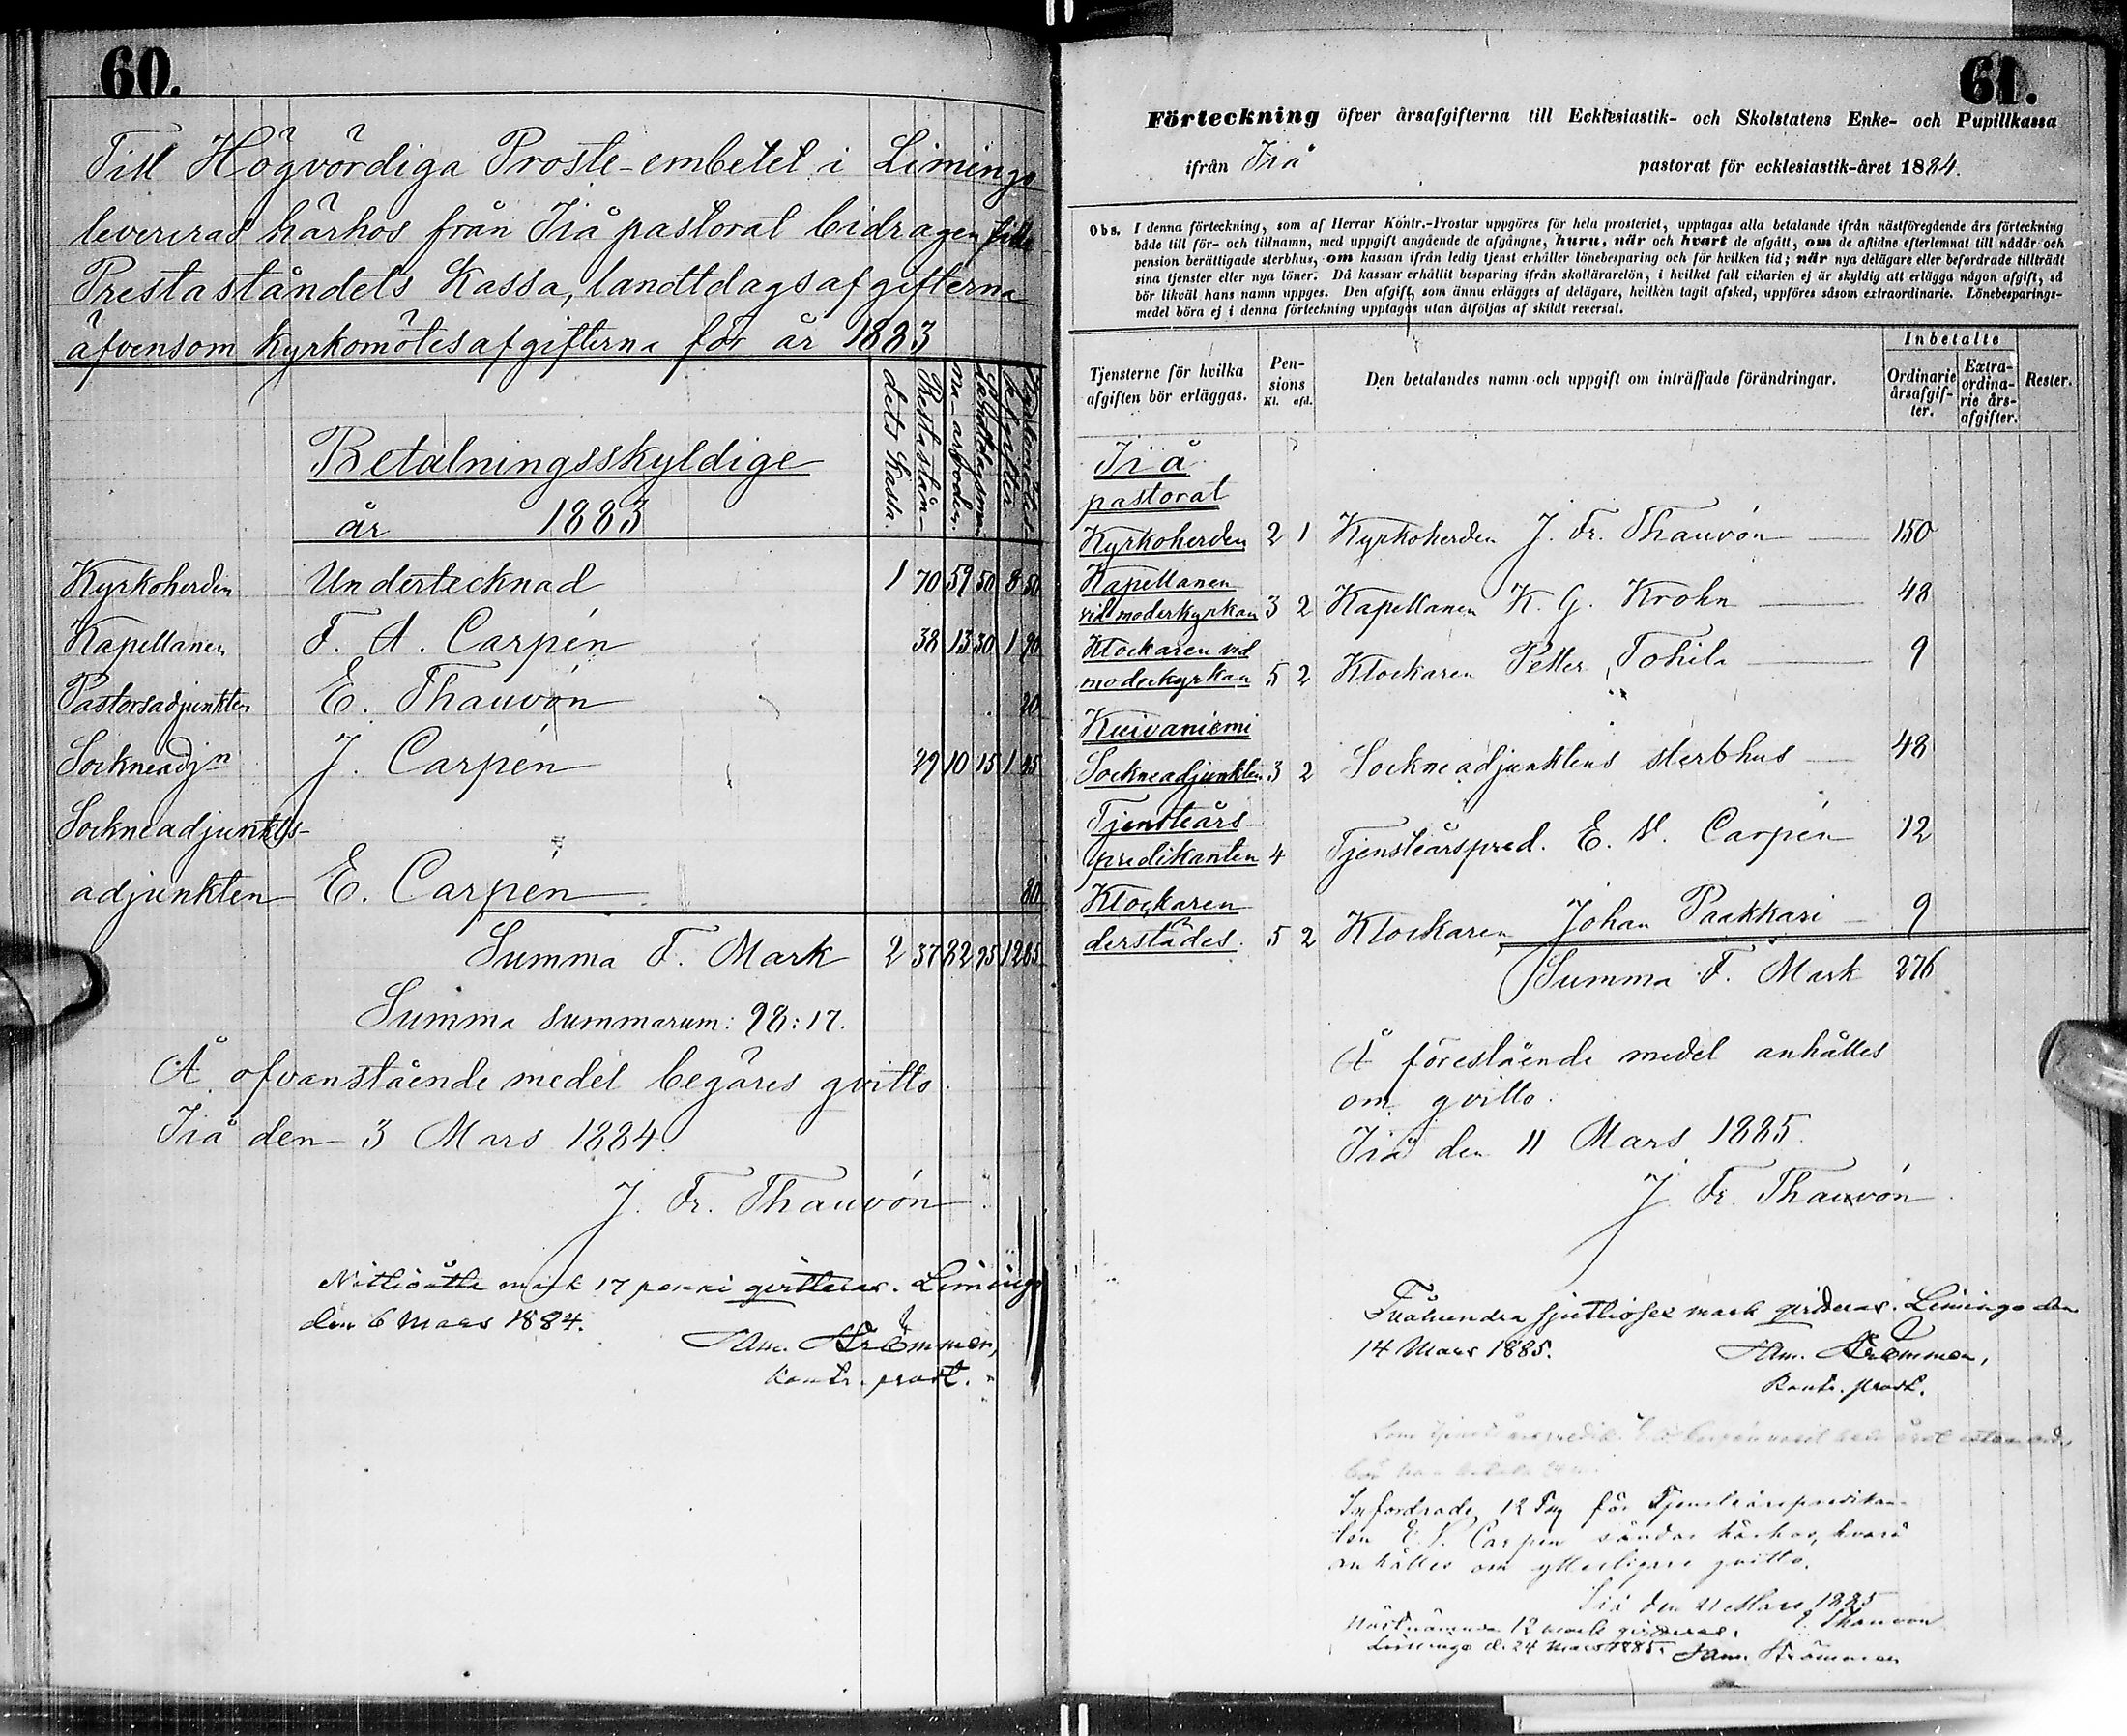 60.
Till Högvördiga Prosteembetet i Limingo
levereras härhos från Iiå pastorat bidragen till
Prestaståndets Kassa, landtdagsafgifterna
äfvensom Kyrkomötesafgifterna för år 1883
Betalningsskyldige
år 1883
Prestaståndets Kassa.
Landtdagsmannaarfvoden.
Kyrkomötesafgifter
Kyrkoherden Undertecknad 1 70 59 50 8 50
Kapellanen F. A. Carpén 38 13 30 1 90
Pastorsadjunkten E. Thauvón 20
Sockneadjn J. Carpén 29 10 15 1 45
Sockneadjunkts-
adjunkten E. Carpén 80
Summa F. Mark 2 37 82 95 12 85
Summa summarum: 98:17.
Å ofvanstående medel begäres qvitto.
Iiå den 3 Mars 1884
J. Fr. Thauvón
Nittioåtta mark 17 penni qvitteras. Limingo
den 6 Mars 1884.
Sam. Strömmer,
Kontr. prost.
61.
Förteckning öfver årsafgifterna till Ecklesiastik- och Skolstatens Enke- och Pupillkassa
ifrån Iiå pastorat för ecklesiastik-året 1884.
Obs. I denna förteckning, som af Herrar Kontr.-Prostar uppgöres för hela prosteriet, upptagas alla betalande ifrån nästföregående års förteckning
både till för- och tillnamn, med uppgift angående de afgångne, huru, när och hvart de afgått, om de aflidne efterlemnat till nådår och
pension berättigade sterbhus, om kassan ifrån ledig tjenst erhåller lönebesparing och för hvilken tid; när nya delägare eller befordrade tillträdt
sina tjenster eller nya löner. Då kassan erhållit besparing ifrån skollärarelön, i hvilket fall vikarien ej är skyldig att erlägga någon afgift, så
bör likväl hans namn uppges. Den afgift, som ännu erlägges af delägare, hvilken tagit afsked, uppföres såsom extraordinarie. Lönebesparings-
medel böra ej i denna förteckning upptagas utan åtföljas af skildt reversal.
Tjensterne för hvilka
afgiften bör erläggas.
Pen-
sions
Kl. afd.
Den betalandes namn och uppgift om inträffade förändringar.
Inbetalte
Ordinarie
årsafgif-
ter.
Extra-
ordina-
rie års-
afgifter.
Rester.
Iiå
pastorat
Kyrkoherden 2 1 Kyrkoherden J. Fr. Thauvón 150
Kapellanen
vid moderkyrkan 3 2 Kapellanen K. G. Krohn 48
Klockaren vid
moderkyrkan 5 2 Klockaren Petter Tohila 9
Kuivaniemi
Sockneadjunkten 3 2 Sockneadjunktens sterbhus 48
Tjensteårs-
predikanten 4 Tjensteårspred. E. V. Carpén 12
Klockaren
derstädes. 5 2 Klockaren Johan Paakkari 9
Summa F. Mark 276
Å förestående medel anhålles
om qvitto.
Iiå den 11 Mars 1885.
J. Fr. Thauvón
Tvåhundra sjuttiosex mark qvitteras. Limingo den
14 Mars 1885.
Sam. Strömmer,
Kontr. prost.
Infordrade 12 för Tjensteårspredikan-
ten E. V. Carpen sändas härhos, hvarå
anhålles om ytterligare qvitto.
Iiå den 21 Mars 1885
Thauvon
Nästnämnda 12 mark qvitteras.
Limingo d. 24 Mars 1885. Sam. Strömmer